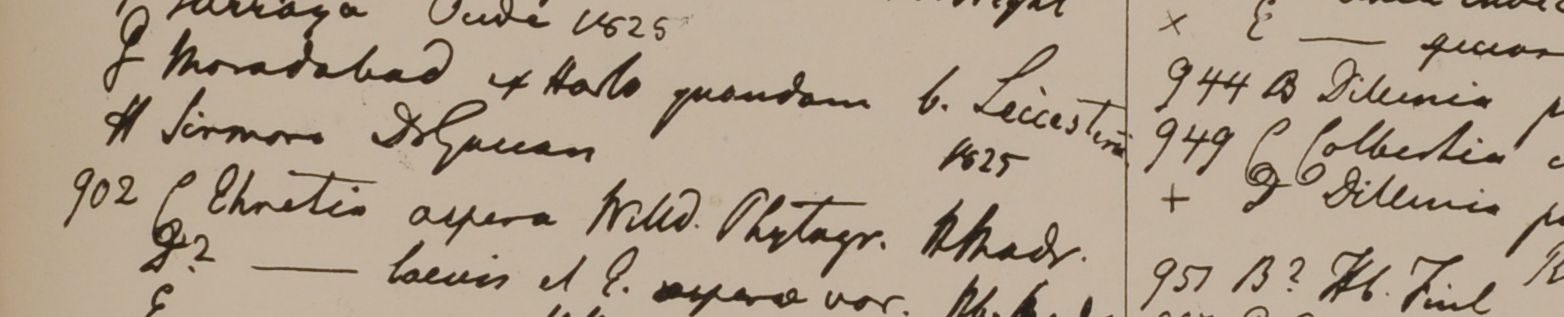 Oude 1825
G Moradabad ex Horto quondam b. Leicesteria
1825
H Sirmore Dr Govan
902 C Ehretia aspera Willd. Phytogr. H Madr.
D? — laevis et E. aspera var. Hb. Madr
E
× E —
944 B Dillenia p
949 C Colbertia
+ D Dillenia p
951 B? Hb. Finl